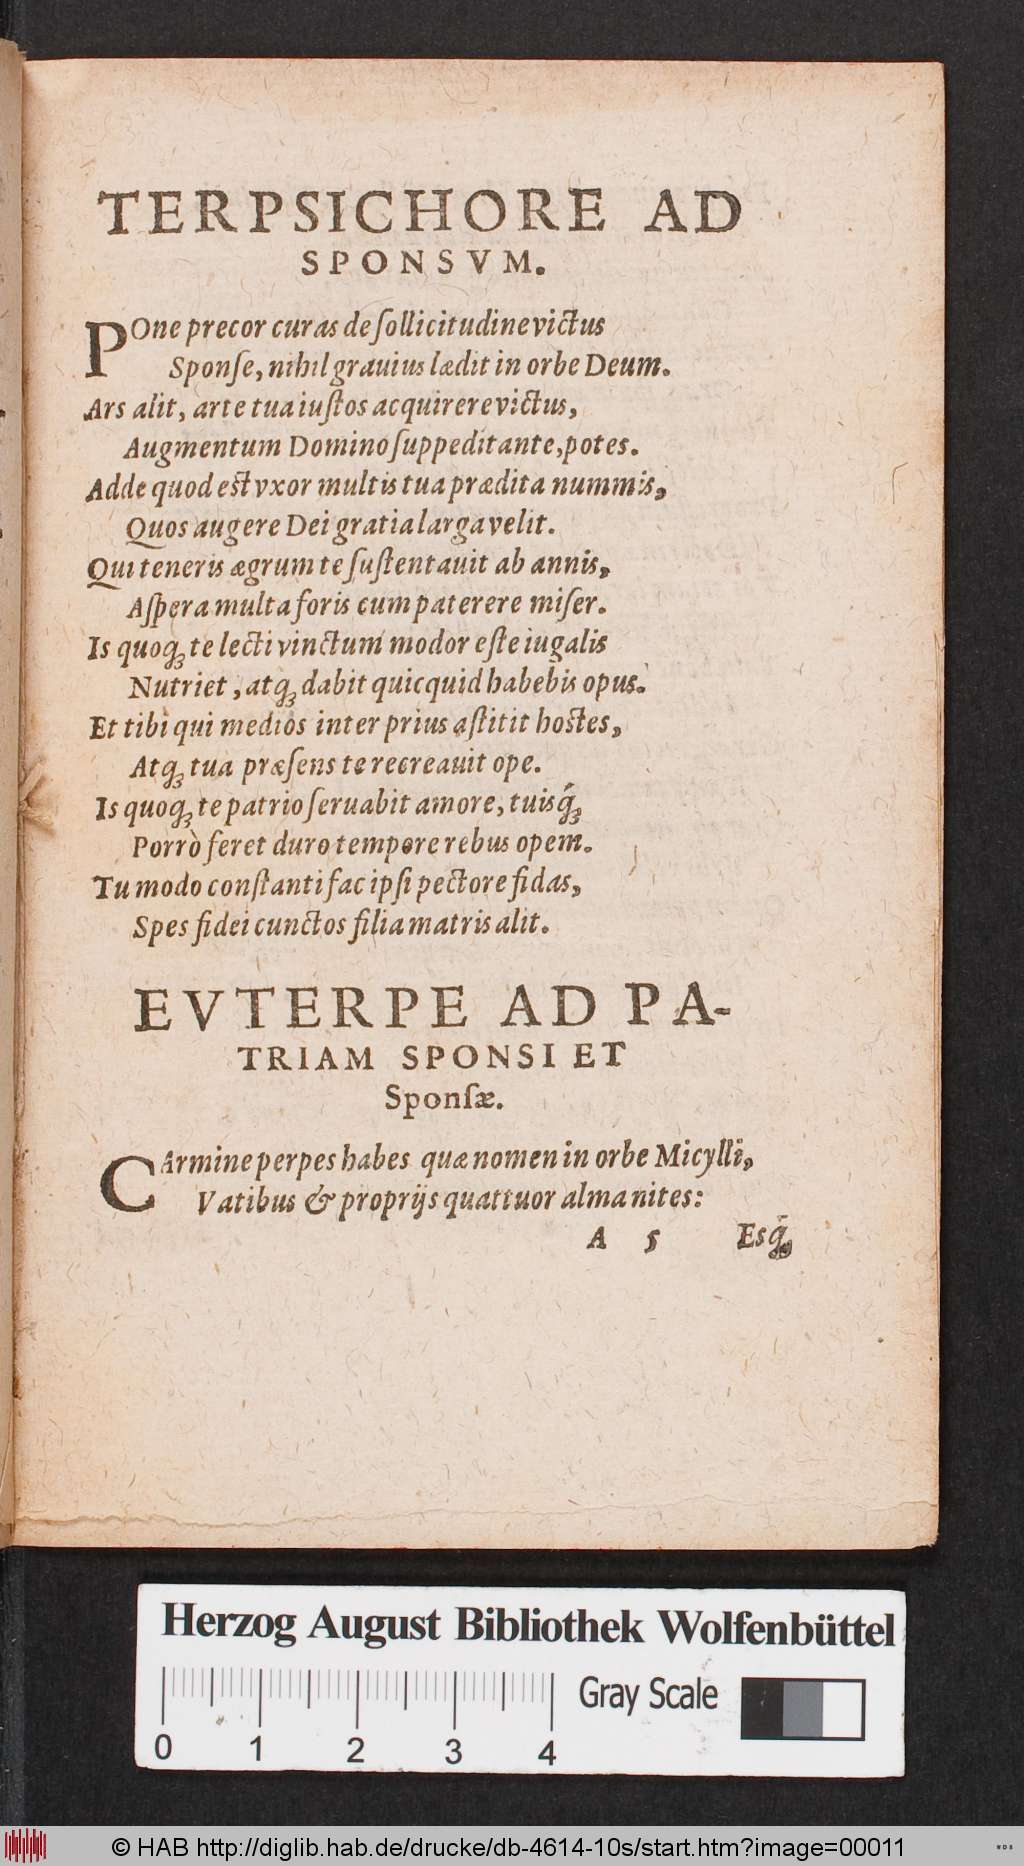 TERPSICHORE AD
SPONSVM.
POne precor curas de ſollicitudine victus
Sponſe, nihil grauius lædit in orbe Deum.
Ars alit, arte tua iuſtos acquirere victus,
Augmentum Domino ſuppeditante, potes.
Adde quod est vxor multis tua prædita nummis,
Quos augere Dei gratia larga velit.
Qui teneris ægrum te ſuſtentauit ab annis,
Aſpera multa foris cum paterere miſer.
Is quoq; te lecti vinctum modor eſte iugalis
Nutriet, atq; dabit quicquid habebis opus.
Et tibi qui medios inter prius aſtitit hostes,
Atq; tua præſens te recreauit ope.
Is quoq; te patrio ſeruabit amore, tuisq́;
Porrò feret duro tempore rebus opem.
Tu modo conſtanti fac ipſi pectore fidas,
Spes fidei cunctos filia matris alit.
EVTERPE AD PA-
TRIAM SPONSI ET
Sponſæ.
CArmine perpes habes quæ nomen in orbe Micylli,
Vatibus & proprijs quattuor alma nites:
A 5 Esq́;
Herzog August Bibliothek Wolfenbüttel
Gray Scale
0 1 2 3 4
© HAB http://diglib.hab.de/drucke/db-4614-10s/start.htm?image=00011